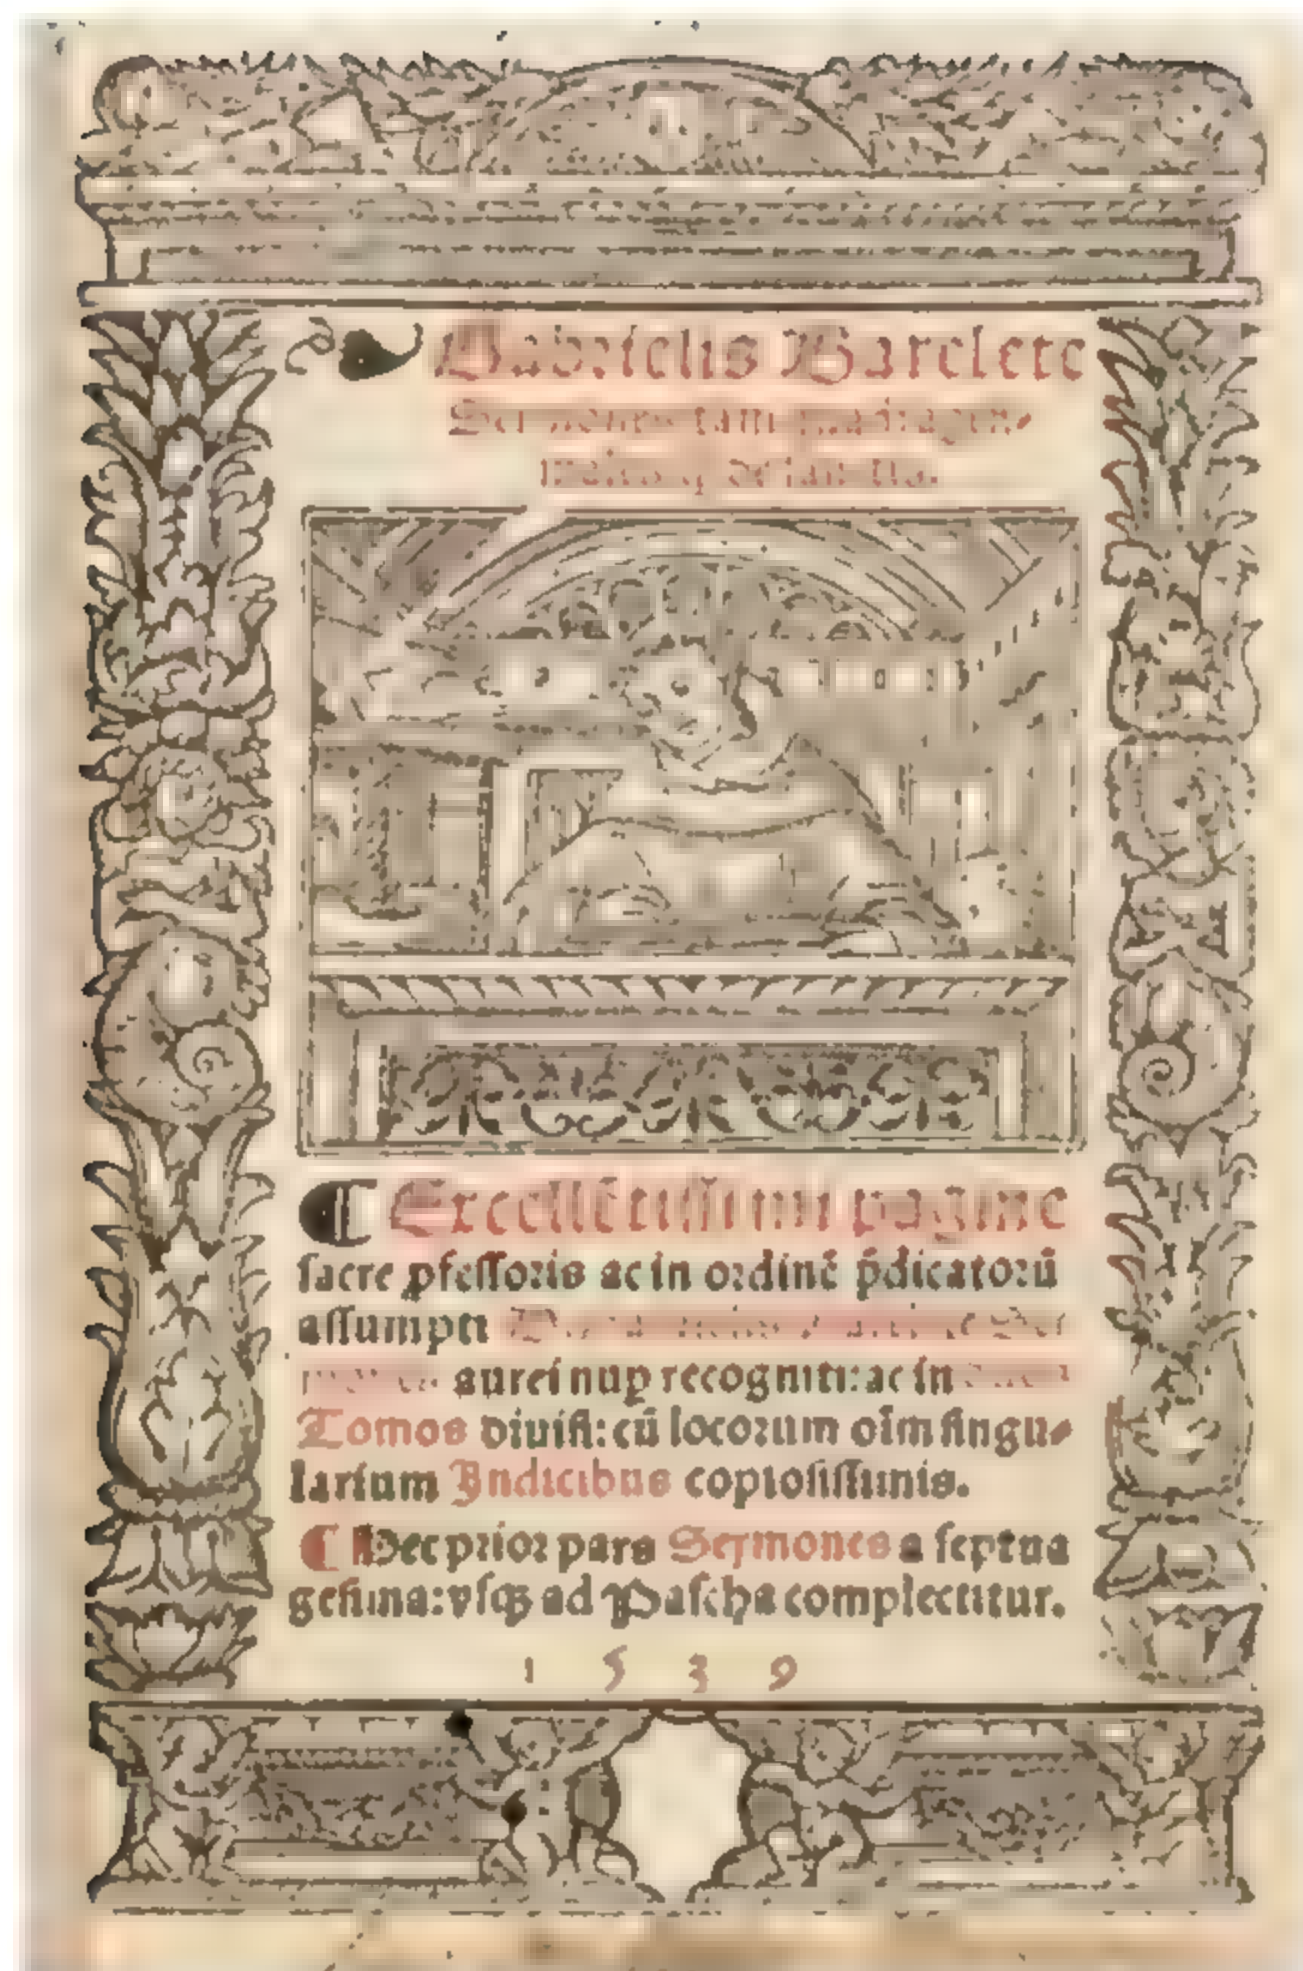 Gabrielis Barelete
Sermones tam quadragesi⸗
de Sanctis.
¶ Excellētissimi pagine
sacre pfessoris ac in ordinē p̄dicatorū
assumpti
aurei nuꝑ recogniti: ac in
Tomos diuisi: cū locorum oīm singu⸗
larium Indicibus copiosissimis.
¶ Hec prior pars Sermones a septua
gesima: vsqꝫ ad Pascha complectitur.
1 5 3 9